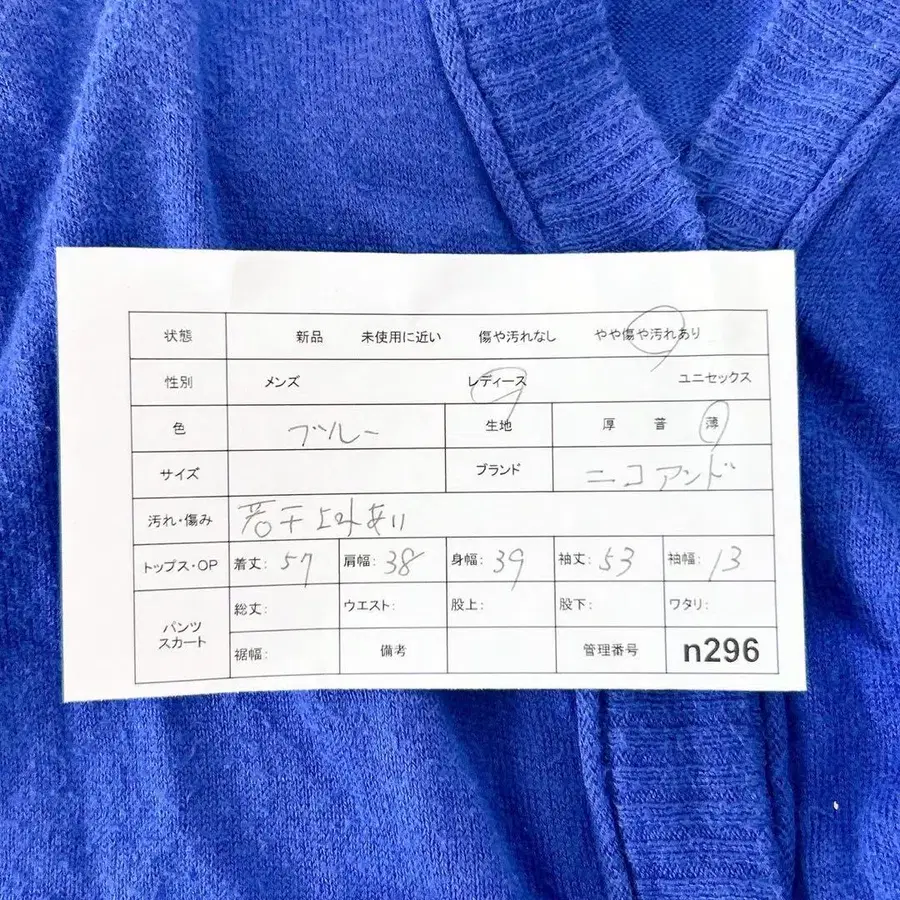 状態 新品 未使用に近い 傷や汚れなし やや傷や汚れあり
性別 メンズ レディース ユニセックス
色 ブルー 生地 厚 普 薄
サイズ ブランド ニコアンド
汚れ・傷み 若干よれあり
トップス・OP 着丈: 57 肩幅: 38 身幅: 39 袖丈: 53 袖幅: 13
パンツ
スカート
総丈: ウエスト: 股上: 股下: ワタリ:
裾幅: 備考 管理番号 n296